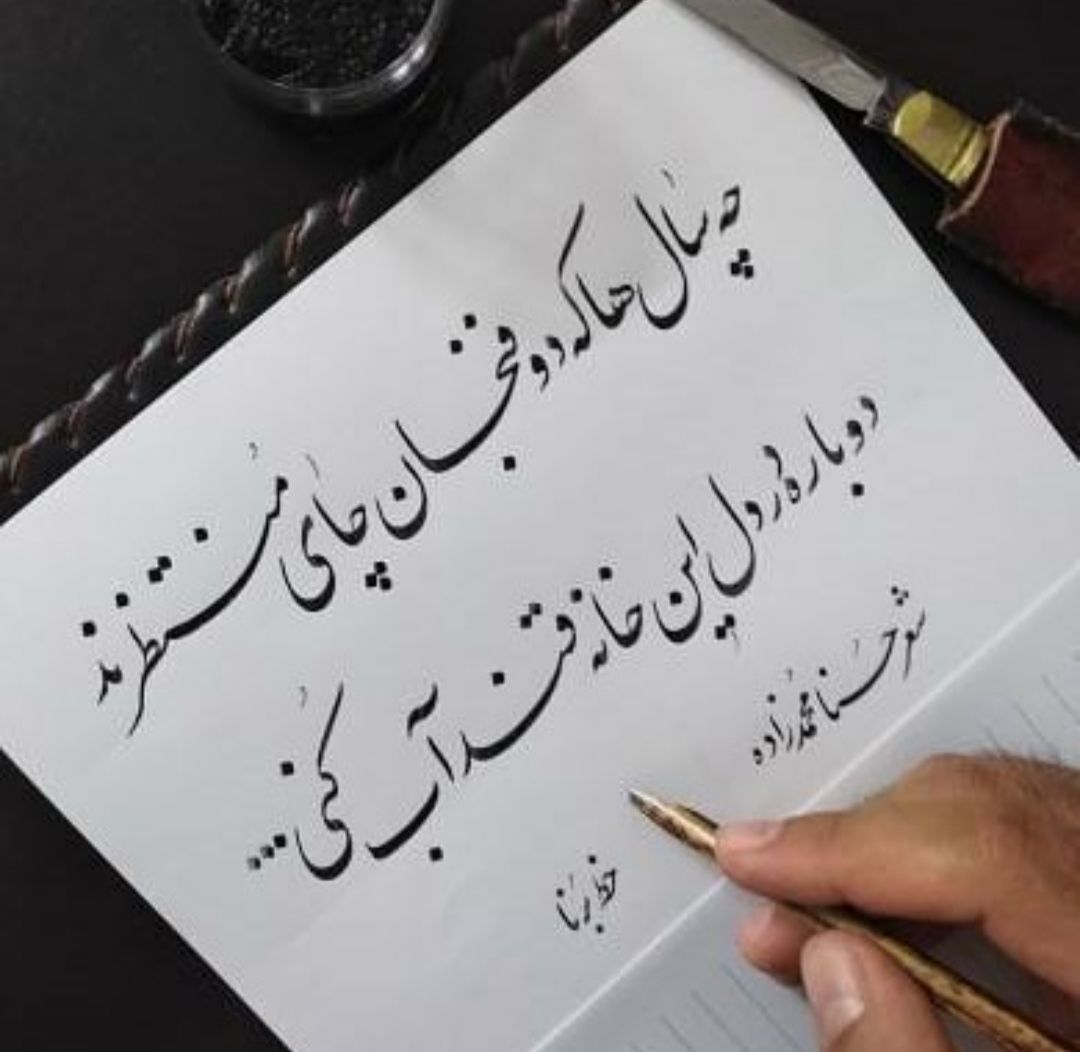 چه سال هاکه دو فنجان چای مُنتظرند
دوباره در دل این خانه قند آب کُنی...
شعر حُسنا محمدزاده
خط برنا